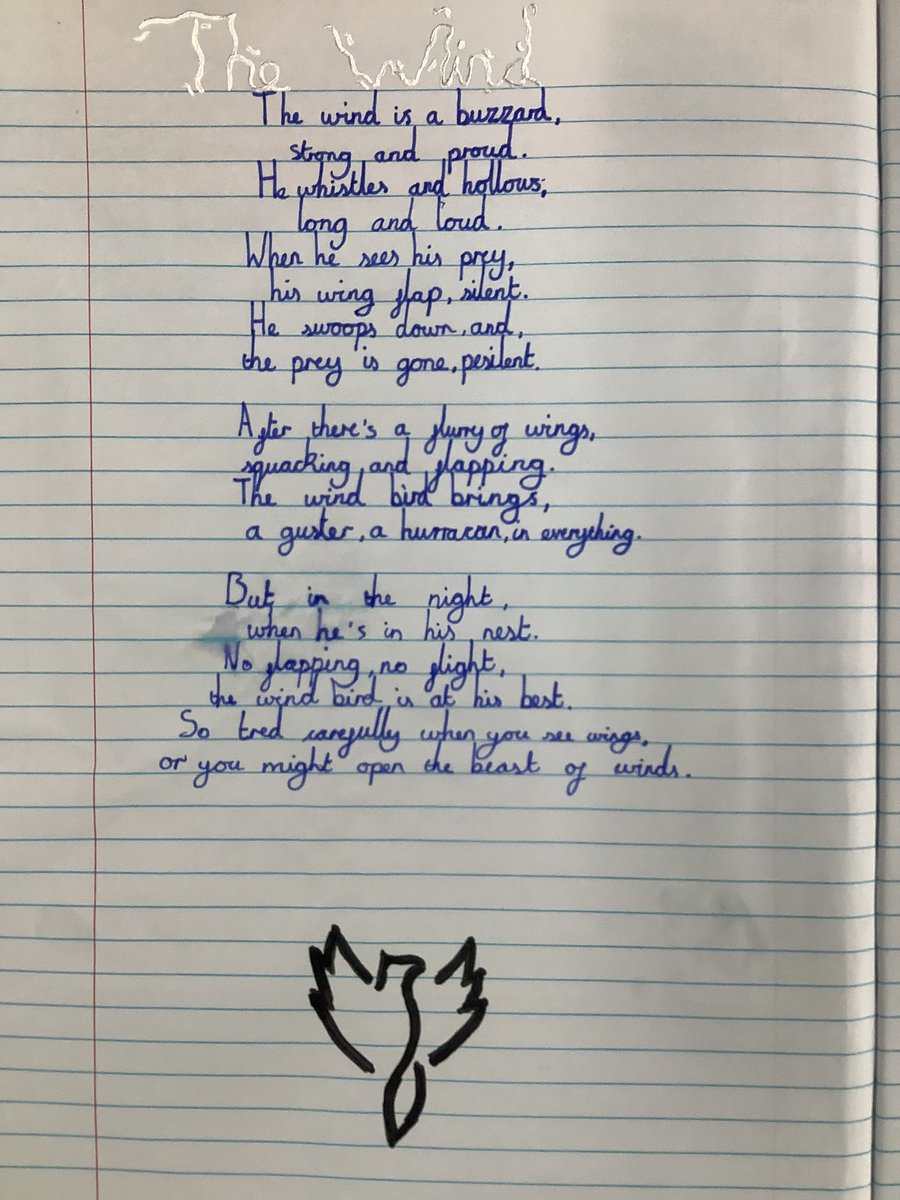 The Wind
The wind is a buzzard,
strong and proud.
He whistles and hollows;
long and loud.
When he sees his prey,
his wing flap, silent.
He swoops down, and,
the prey is gone, pesilent.
After there's a flurry of wings,
squacking and flapping.
The wind bird brings,
a guster, a hurracan, in everything.
But in the night,
when he's in his nest.
No flapping, no flight,
the wind bird is at his best.
So tred carefully when you see wings,
or you might open the beast of winds.